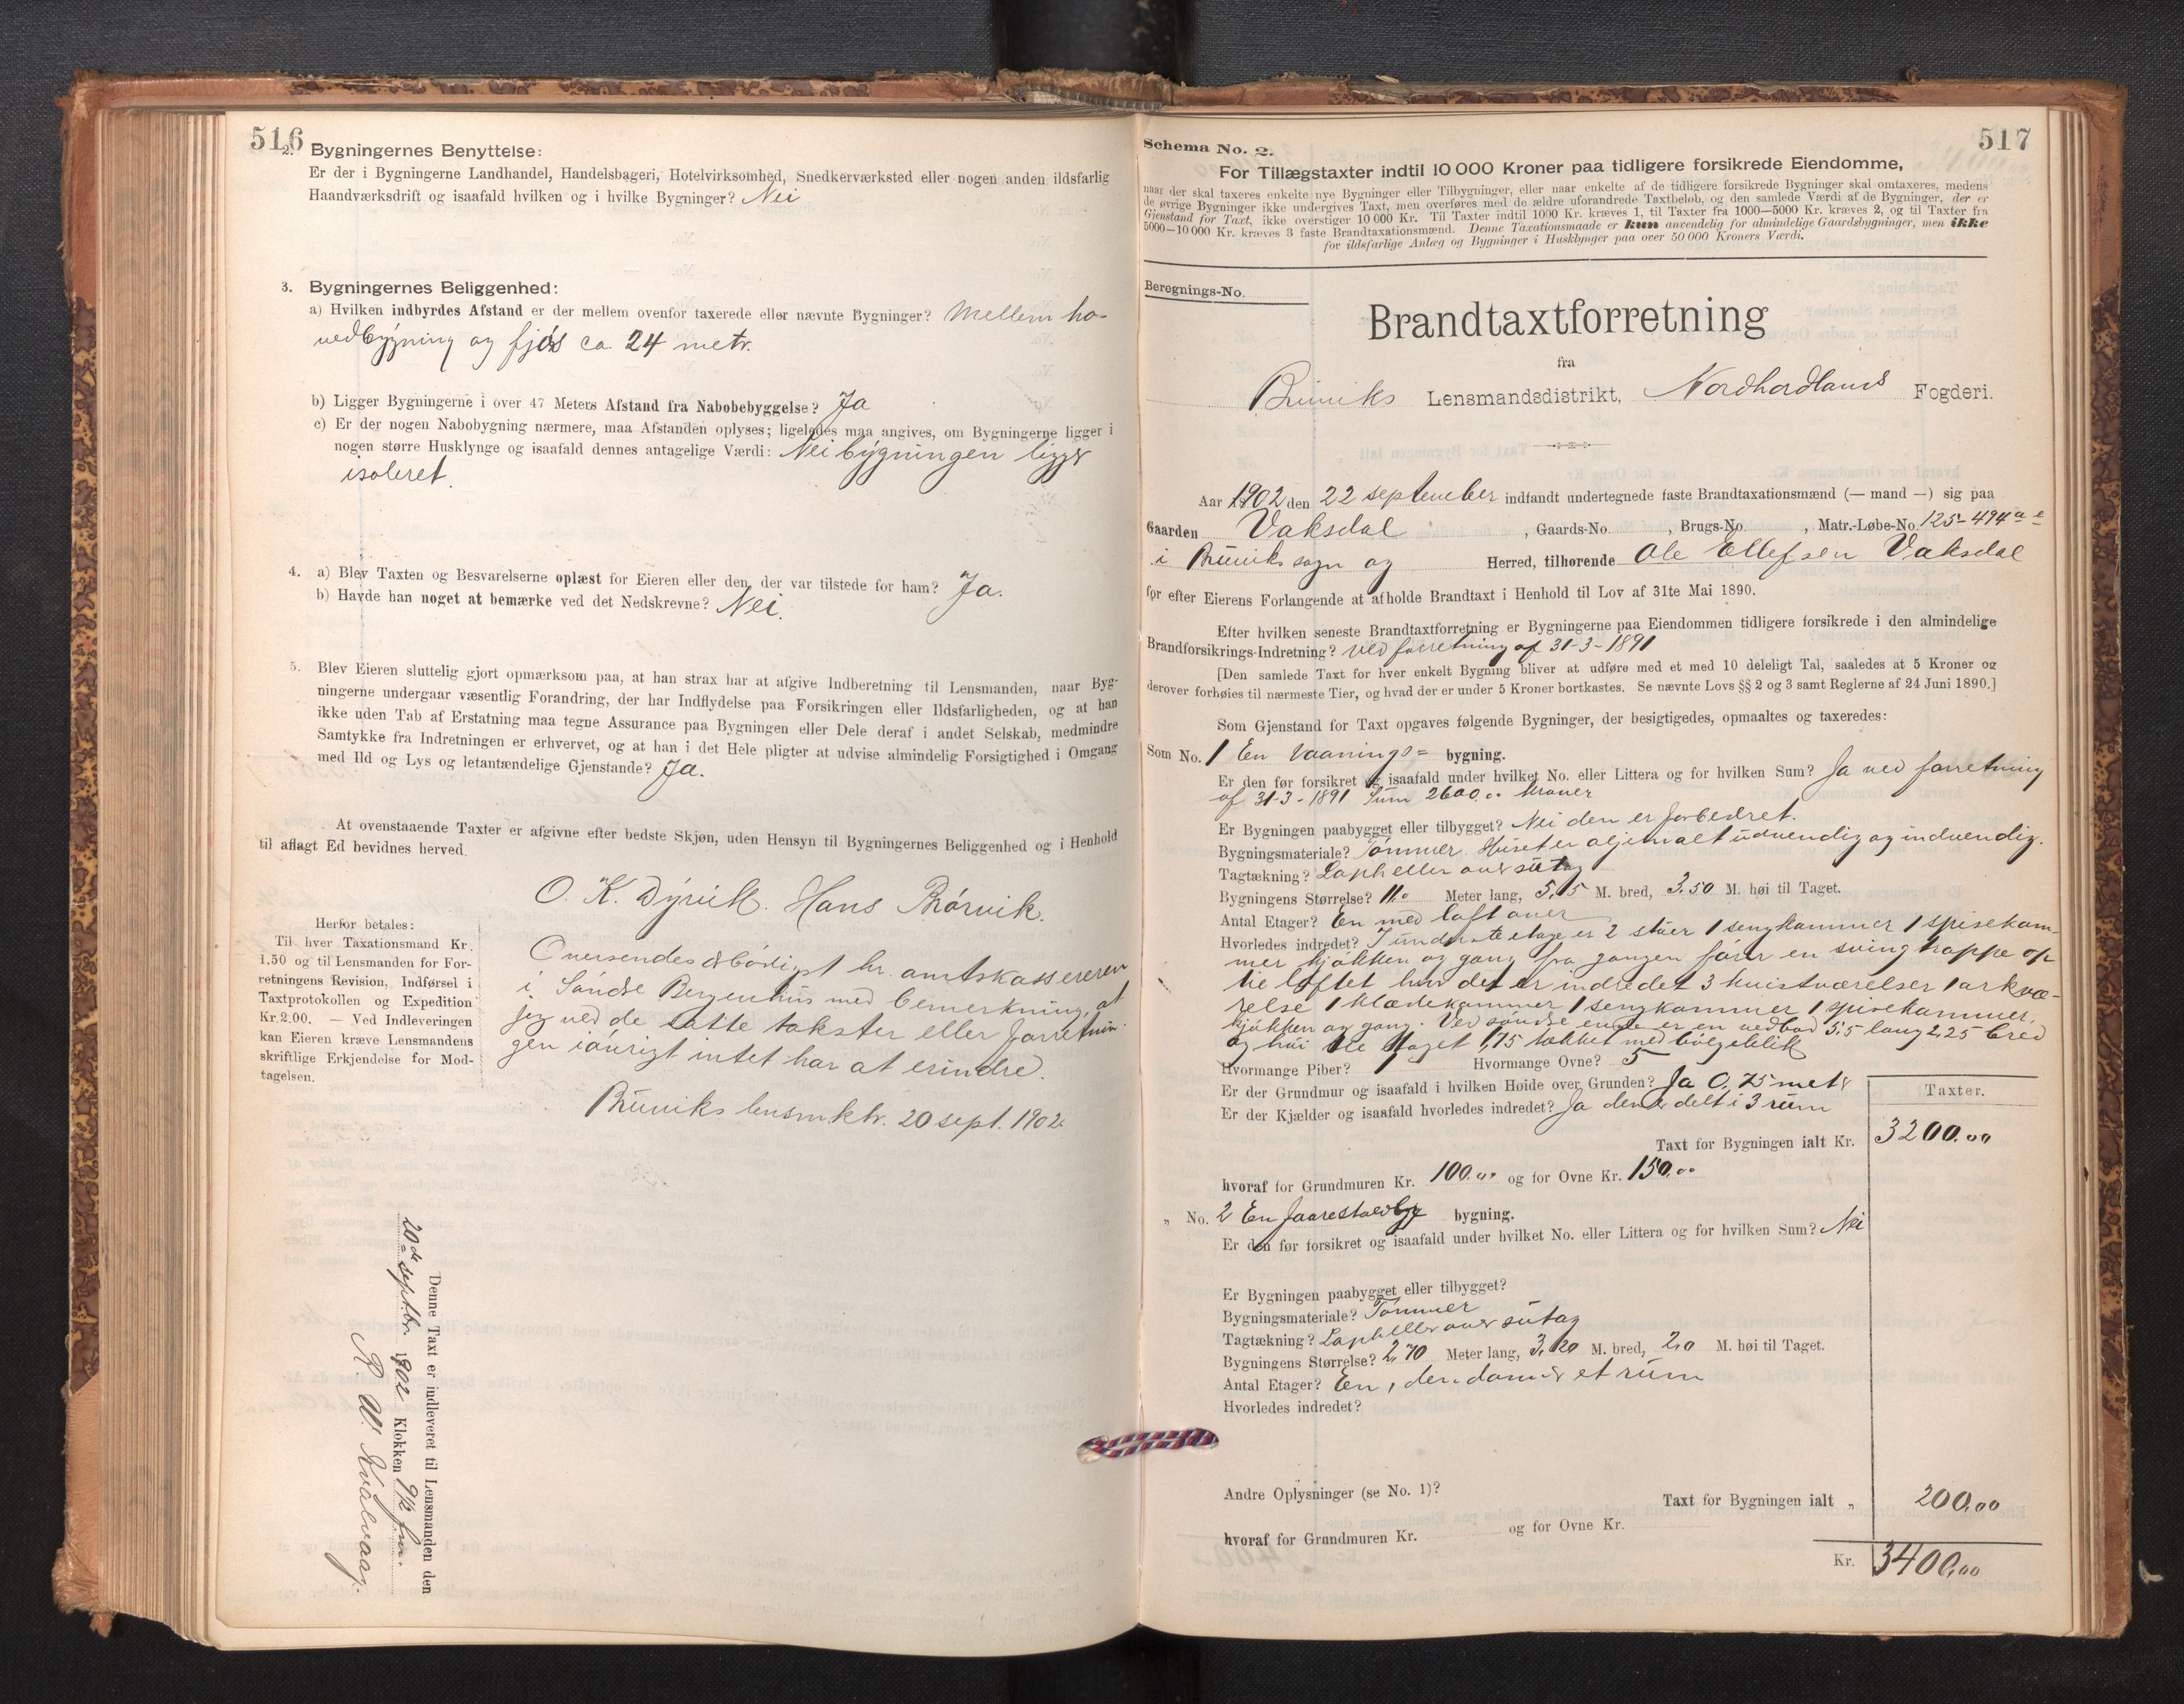 516
2. Bygningernes Benyttelse:
Er der i Bygningerne Landhandel, Handelsbageri, Hotelvirksomhed, Snedkerværksted eller nogen anden ildsfarlig
Haandværksdrift og isaafald hvilken og i hvilke Bygninger? Nei
3. Bygningernes Beliggenhed:
a) Hvilken indbyrdes Afstand er der mellem ovenfor taxerede eller nævnte Bygninger? Mellem ho-
vedbygning og fjøs ca. 24 metr.
b) Ligger Bygningerne i over 47 Meters Afstand fra Nabobebyggelse? Ja
c) Er der nogen Nabobygning nærmere, maa Afstanden oplyses; ligeledes maa angives, om Bygningerne ligger i
nogen større Husklynge og isaafald dennes antagelige Værdi: Nei bygningen ligger
isoleret.
4. a) Blev Taxten og Besvarelserne oplæst for Eieren eller den, der var tilstede for ham? Ja.
b) Havde han noget at bemærke ved det Nedskrevne? Nei.
5. Blev Eieren sluttelig gjort opmærksom paa, at han strax har at afgive Indberetning til Lensmanden, naar Byg-
ningerne undergaar væsentlig Forandring, der har Indflydelse paa Forsikringen eller Ildsfarligheden, og at han
ikke uden Tab af Erstatning maa tegne Assurance paa Bygningen eller Dele deraf i andet Selskab, medmindre
Samtykke fra Indretningen er erhvervet, og at han i det Hele pligter at udvise almindelig Forsigtighed i Omgang
med Ild og Lys og letantændelige Gjenstande? Ja.
At ovenstaaende Taxter er afgivne efter bedste Skjøn, uden Hensyn til Bygningernes Beliggenhed og i Henhold
til aflagt Ed bevidnes herved.
O. K. Dyvik. Hans Rörvik.
Herfor betales:
Til hver Taxationsmand Kr.
1.50 og til Lensmanden for For-
retningens Revision, Indførsel i
Taxtprotokollen og Expedition
Kr. 2.00. — Ved Indleveringen
kan Eieren kræve Lensmandens
skriftlige Erkjendelse for Mod-
tagelsen.
Oversendes ærbödigst hr. amtskassereren
i Söndre Bergenhus med bemærkning, at
jeg ved de satte takster eller forretnin-
gen iövrigt intet har at erindre.
Bruviks lensm.ktr. 20 sept. 1902.
Denne Taxt er indleveret til Lensmanden den
20de septbr. 1902 Klokken 9½ fm.
R. W. Kvalvaag.
517
Schema No. 2.
For Tillægstaxter indtil 10 000 Kroner paa tidligere forsikrede Eiendomme,
naar der skal taxeres enkelte nye Bygninger eller Tilbygninger, eller naar enkelte af de tidligere forsikrede Bygninger skal omtaxeres, medens
de øvrige Bygninger ikke undergives Taxt, men overføres med de ældre uforandrede Taxtbeløb, og den samlede Værdi af de Bygninger, der er
Gjenstand for Taxt, ikke overstiger 10 000 Kr. Til Taxter indtil 1000 Kr. kræves 1, til Taxter fra 1000—5000 Kr. kræves 2, og til Taxter fra
5000—10 000 Kr. kræves 3 faste Brandtaxationsmænd. Denne Taxationsmaade er kun anvendelig for almindelige Gaardsbygninger, men ikke
for ildsfarlige Anlæg og Bygninger i Husklynger paa over 50 000 Kroners Værdi.
Beregnings-No.
Brandtaxtforretning
fra
Bruviks Lensmandsdistrikt, Nordhordlands Fogderi.
Aar 1902 den 22 september indfandt undertegnede faste Brandtaxationsmænd (— mand —) sig paa
Gaarden Vaksdal, Gaards-No. , Brugs-No. , Matr.-Løbe-No. 125-494 a e
i Bruviks sogn og Herred, tilhørende Ole Ellefsen Vaksdal
for efter Eierens Forlangende at afholde Brandtaxt i Henhold til Lov af 31te Mai 1890.
Efter hvilken seneste Brandtaxtforretning er Bygningerne paa Eiendommen tidligere forsikrede i den almindelige
Brandforsikrings-Indretning? ved forretning af 31-3-1891
[Den samlede Taxt for hver enkelt Bygning bliver at udføre med et med 10 deleligt Tal, saaledes at 5 Kroner og
derover forhøies til nærmeste Tier, og hvad der er under 5 Kroner bortkastes. Se nævnte Lovs §§ 2 og 3 samt Reglerne af 24 Juni 1890.]
Som Gjenstand for Taxt opgaves følgende Bygninger, der besigtigedes, opmaaltes og taxeredes:
Som No. 1 En vaanings= bygning.
Er den før forsikret og isaafald under hvilket No. eller Littera og for hvilken Sum? Ja ved forretning
af 31-3-1891 Sum 2600.00 kroner
Er Bygningen paabygget eller tilbygget? Nei den er forbedret.
Bygningsmateriale? Tömmer. Huset er oljemalt udvendig og indvendig.
Tagtækning? Lapheller over sutag
Bygningens Størrelse? 11.0 Meter lang, 5.15 M. bred, 3.50 M. høi til Taget.
Antal Etager? En med loft over
Hvorledes indredet? I underste etage er 2 stuer 1 sengkammer 1 spisekam-
mer kjökken og gang fra gangen förer en svingtrappe op
til loftet hvor det er indredet 3 kvistværelser 1 arkvæ-
relse 1 klædekammer 1 sengkammer 1 spisekammer,
kjökken og gang. Ved söndre ende er en vedbod 5,5 lang 2,25 bred
og höi til taget 1,75 tækket med bölgeblik
Hvormange Piber? 1 Hvormange Ovne? 5
Er der Grundmur og isaafald i hvilken Høide over Grunden? Ja 0.75 meter
Er der Kjælder og isaafald hvorledes indredet? Ja den er delt i 3 rum
Taxter.
Taxt for Bygningen ialt Kr. 3200.00
hvoraf for Grundmuren Kr. 100.00 og for Ovne Kr. 150.00
„ No. 2 En faarestaldby bygning.
Er den før forsikret og isaafald under hvilket No. eller Littera og for hvilken Sum? Nei
Er Bygningen paabygget eller tilbygget?
Bygningsmateriale? Tömmer
Tagtækning? Lapheller over sutag
Bygningens Størrelse? 2.70 Meter lang, 3.20 M. bred, 2.0 M. høi til Taget.
Antal Etager? En, et rum
Hvorledes indredet?
Andre Oplysninger (se No. 1)?
Taxt for Bygningen ialt „ 200.00
hvoraf for Grundmuren Kr. og for Ovne Kr.
Kr. 3400,00